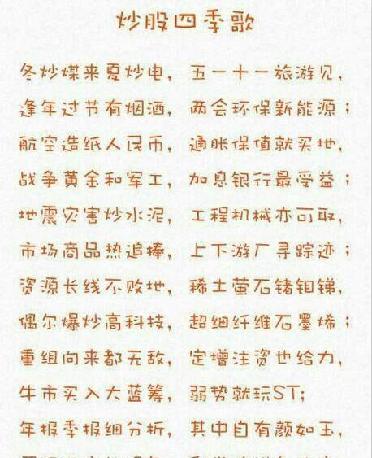 炒股四季歌
冬炒煤来夏炒电，五一十一旅游见，
逢年过节有烟酒，两会环保新能源；
航空造纸人民币，通胀保值就买地，
战争黄金和军工，加息银行最受益；
地震灾害炒水泥，工程机械亦可取，
市场商品热追捧，上下游厂寻踪迹；
资源长线不败地，稀土萤石锗钼锑，
偶尔爆炒高科技，超细纤维石墨烯；
重组向来都无敌，定增注资也给力，
牛市买入大蓝筹，弱势就玩ST；
年报季报细分析，其中自有颜如玉，